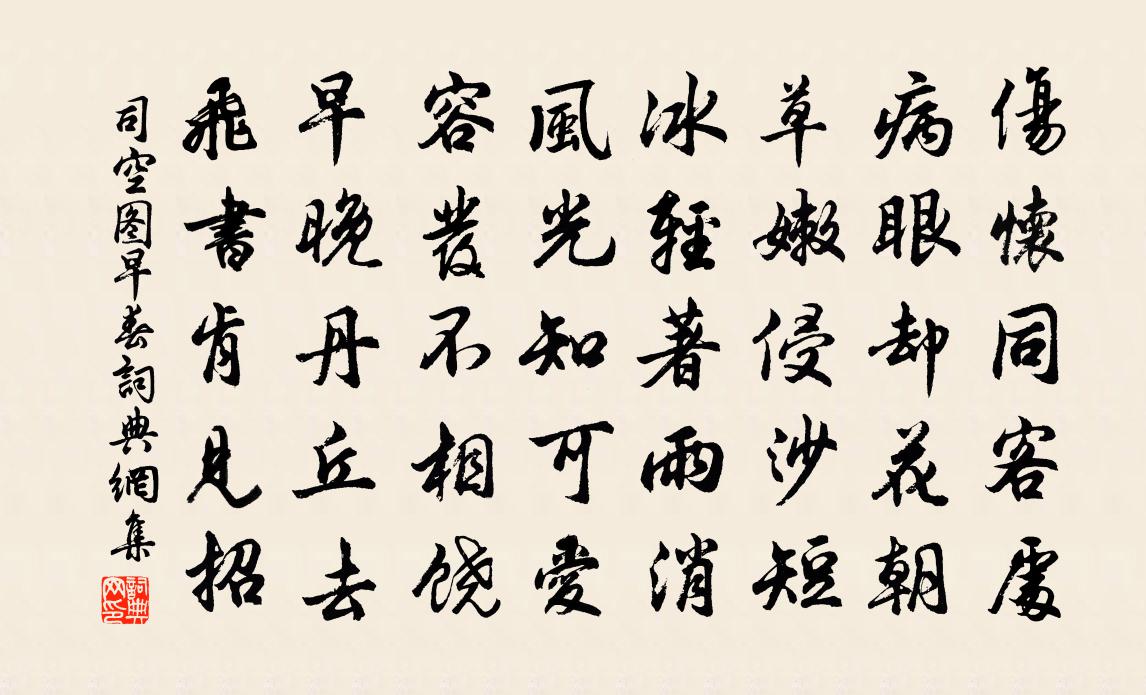 傷懷同客處
病眼却花朝
草嫩侵沙短
冰輕著雨消
風光知可愛
容發不相饶
早晚丹丘去
飛書肯見招
司空图早春詞典網集
詞典网印